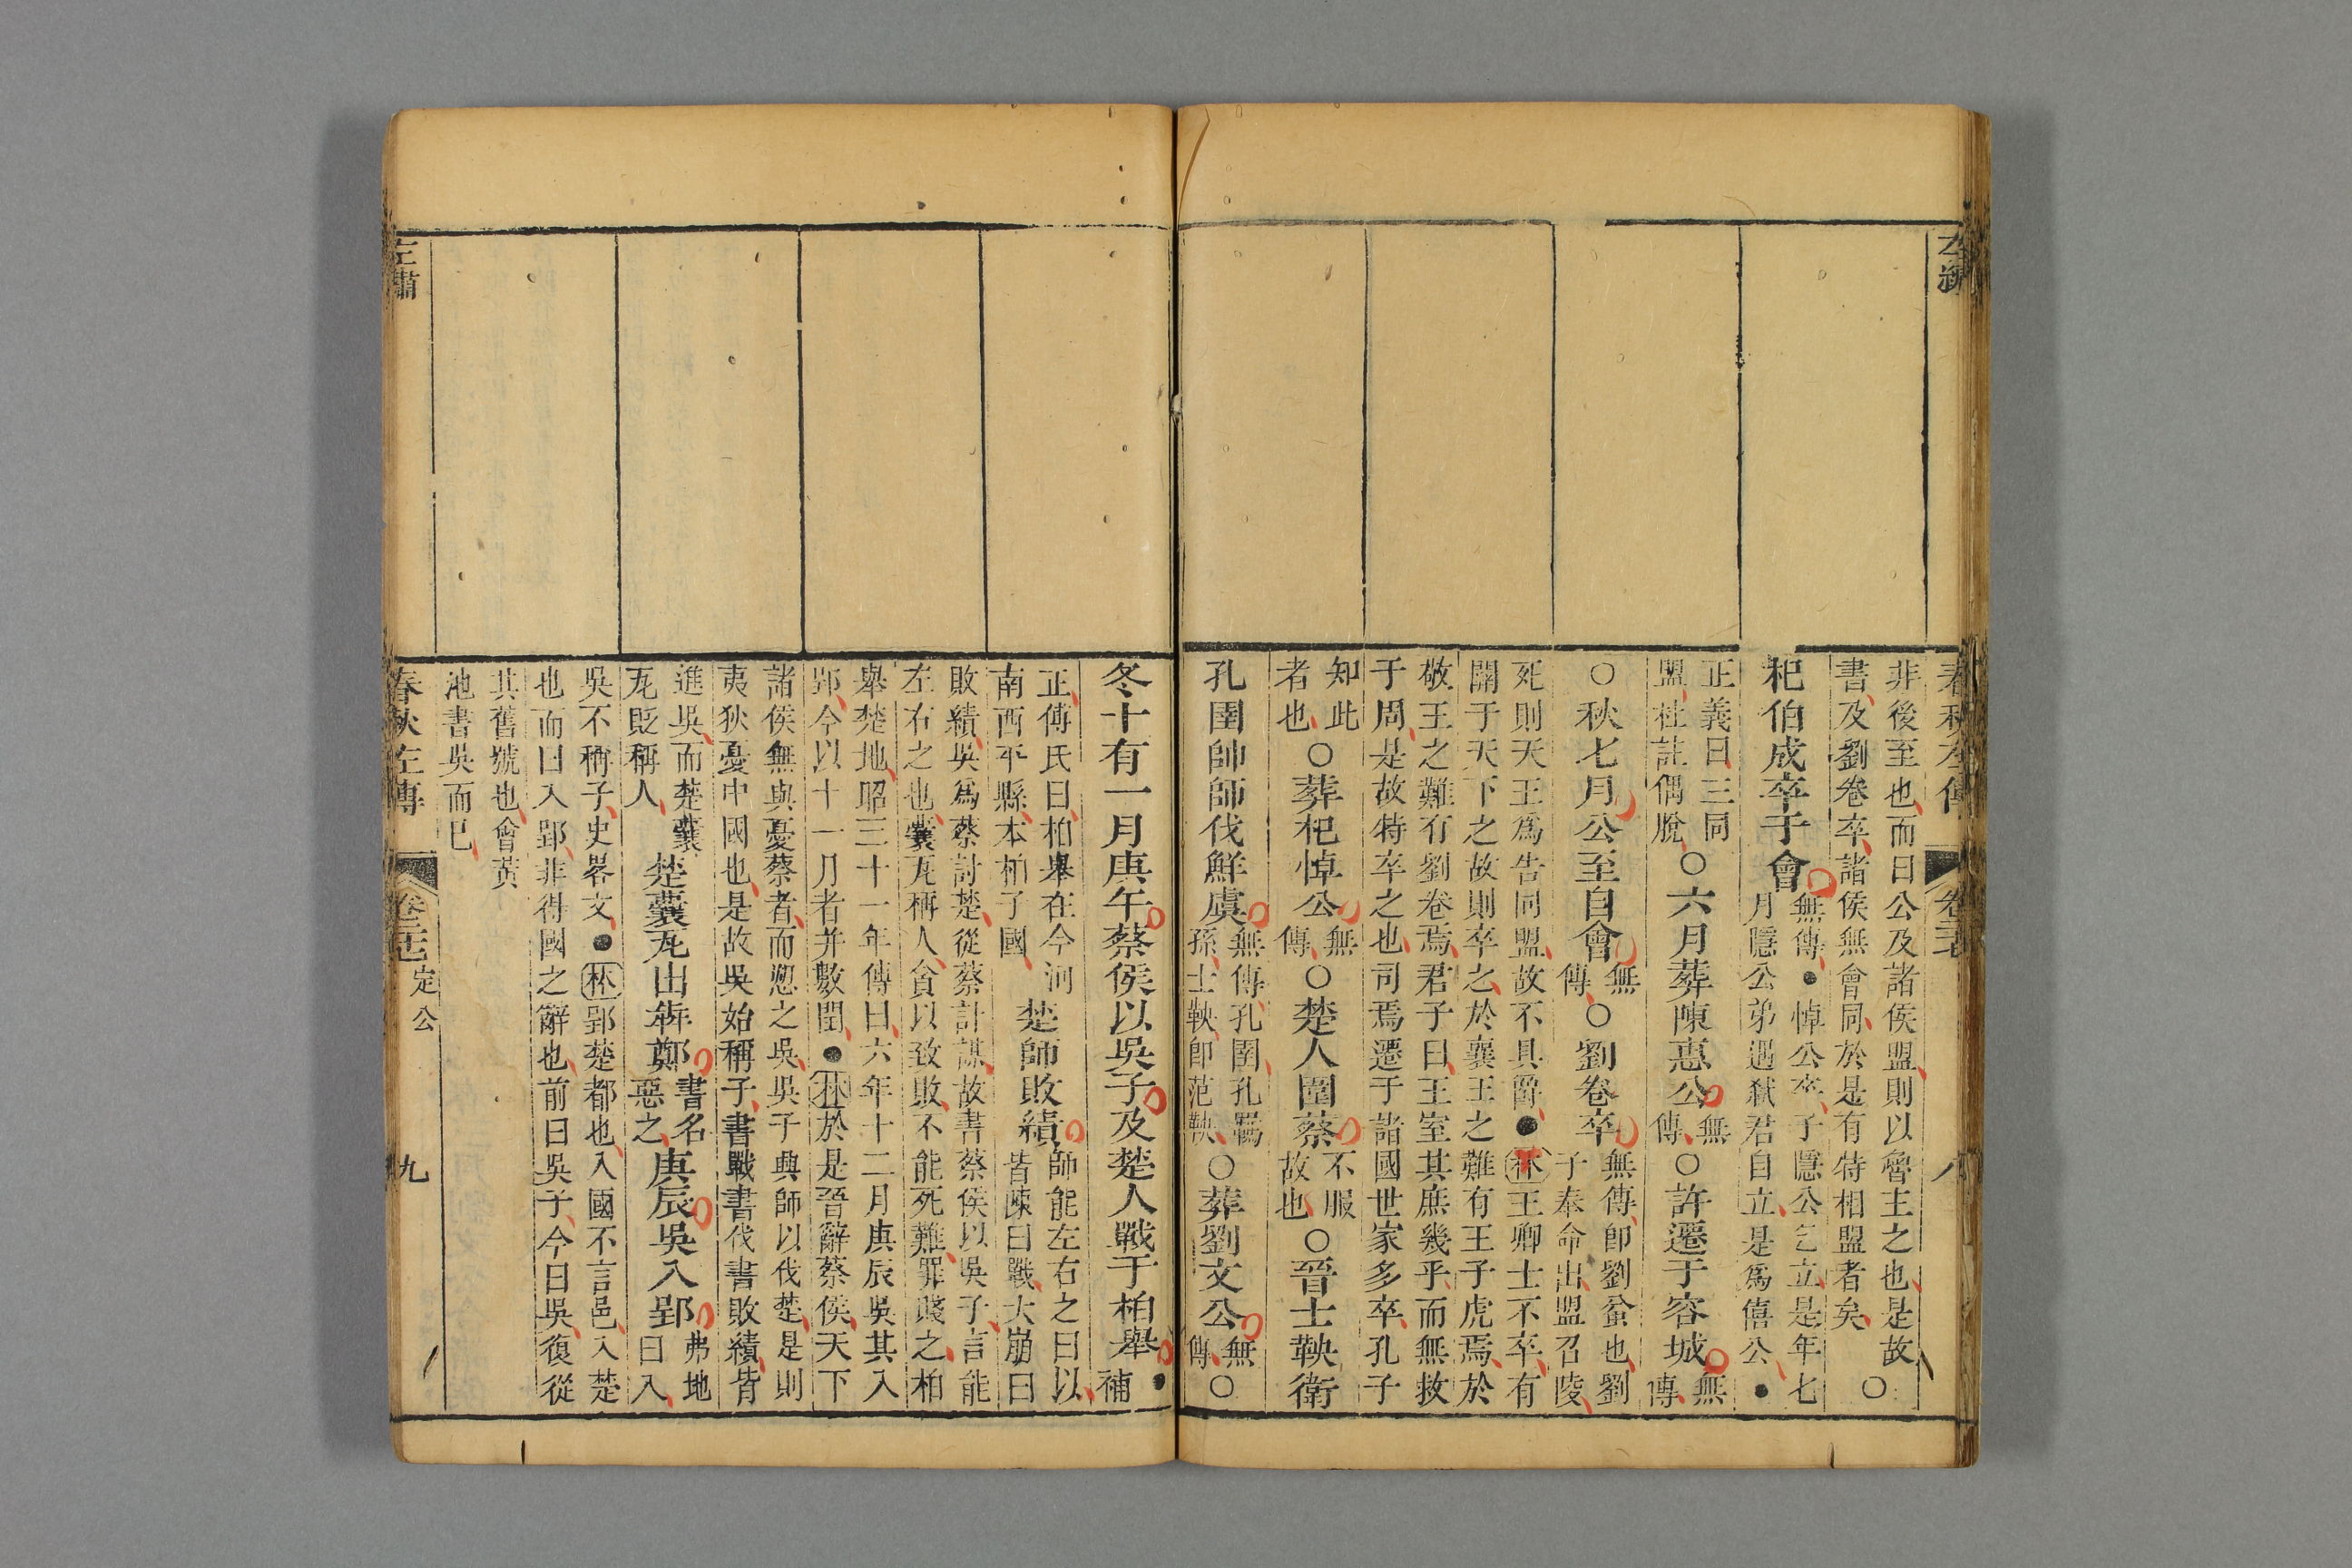 春秋左傳 卷三十 八
非後至也而曰公及諸侯盟則以魯主之也是故
書及劉卷卒諸侯無會同於是有特相盟者矣○
杞伯成卒于會無傳●悼公卒子隱公乞立是年七月隱公弟遇弒君自立是爲僖公●
正義曰三同盟杜註偶脫○六月葬陳惠公無傳○許遷于容城無傳
○秋七月公至自會無傳○劉卷卒無傳卽劉蚠也劉子奉命出盟召陵
死則天王爲告同盟故不具爵●林王卿士不卒有
關于天下之故則卒之於襄王之難有王子虎焉於
敬王之難有劉卷焉君子曰王室其庶幾乎而無救
于周是故特卒之也司焉遷于諸國世家多卒孔子
知此者也○葬杞悼公無傳○楚人圍蔡不服故也○晉士鞅衛
孔圉帥師伐鮮虞無傳孔圉孔羈孫士鞅卽范鞅○葬劉文公無傳○
冬十有一月庚午蔡侯以吳子及楚人戰于柏舉●補
正傅氏曰柏舉在今河南西平縣本柏子國楚師敗績師能左右之曰以皆陳曰戰大崩曰
敗績吳爲蔡討楚從蔡計謀故書蔡侯以吳子言能
左右之也囊瓦稱人貪以致敗不能死難罪賤之柏
舉楚地昭三十一年傳曰六年十二月庚辰吳其入
郢今以十一月者并數閏●林於是晉辭蔡侯天下
諸侯無與憂蔡者而愬之吳吳子興師以伐楚是則
夷狄憂中國也是故吳始稱子書戰書伐書敗績皆
進吳而楚囊瓦貶稱人楚囊瓦出奔鄭書名惡之庚辰吳入郢弗地曰入
吳不稱子史畧文●林郢楚都也入國不言邑入楚
也而曰入郢非得國之辭也前曰吳子今曰吳復從
其舊號也會黃
池書吳而已
左繡 春秋左傳 定公 九